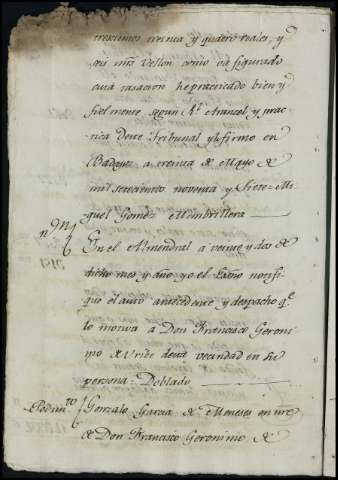 trescientos treinta y quatro reales, y
seis mrs Vellon como va figurado
cuia tasacion he practicado bien y
fielmente segun Rl Arancel y prac-
tica de este Tribunal y lo firmo en
Badajoz a treinta de Mayo de
mil setecientos noventa y siete- Mi-
guel Gomez Membrillera
En el Almendral a veinte y dos de
dicho mes y año yo el notifi-
que el auto antecedente y despacho qe
lo motiva a Don Francisco Geroni-
mo de de esta vecindad en su
persona. Doblado
Pedimto Gonzalo Garcia de Meneses en nre
de Don Francisco Geronimo de